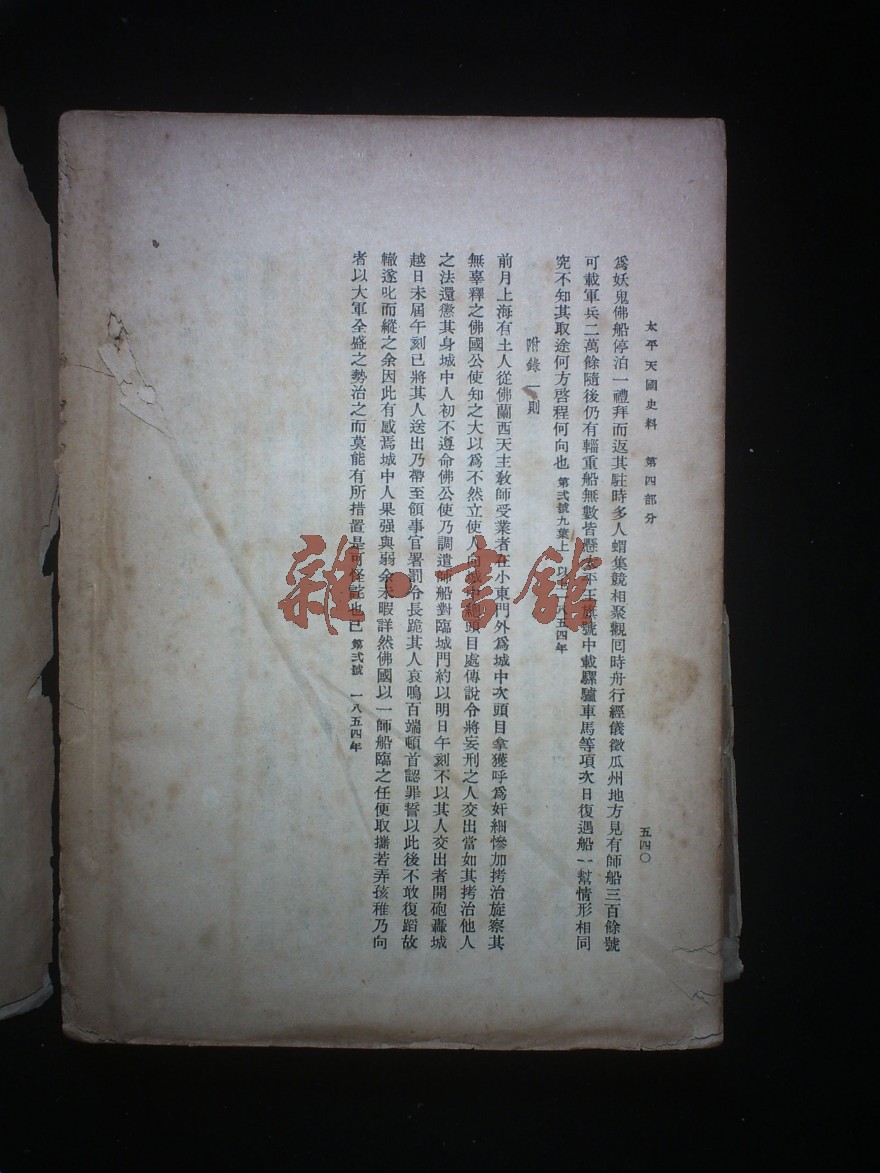 太平天國史料 第四部分 五四〇
爲妖鬼佛船停泊一禮拜而返其駐時多人蝟集競相聚觀囘時舟行經儀徵瓜州地方見有師船三百餘號
可載軍兵二萬餘隨後仍有輜重船無數皆懸太平王旗號中載騾驢車馬等項次日復遇船一幫情形相同
究不知其取途何方啓程何向也 第弍號九葉上 以 一八五四年
附錄一則
前月上海有土人從佛蘭西天主敎師受業者在小東門外爲城中次頭目拿獲呼爲奸細慘加拷治旋察其
無辜釋之佛國公使知之大以爲不然立使人向城中總頭目處傳說令將妄刑之人交出當如其拷治他人
之法還懲其身城中人初不遵命佛公使乃調遣師船對臨城門約以明日午刻不以其人交出者開砲轟城
越日未屆午刻已將其人送出乃帶至領事官署罰令長跪其人哀鳴百端頓首認罪誓以此後不敢復蹈故
轍遂叱而縱之余因此有感焉城中人果强與弱余未暇詳然佛國以一師船臨之任便取攜若弄孩稚乃向
者以大軍全盛之勢治之而莫能有所措置是可怪詫也已 第弍號 一八五四年
雜·書館